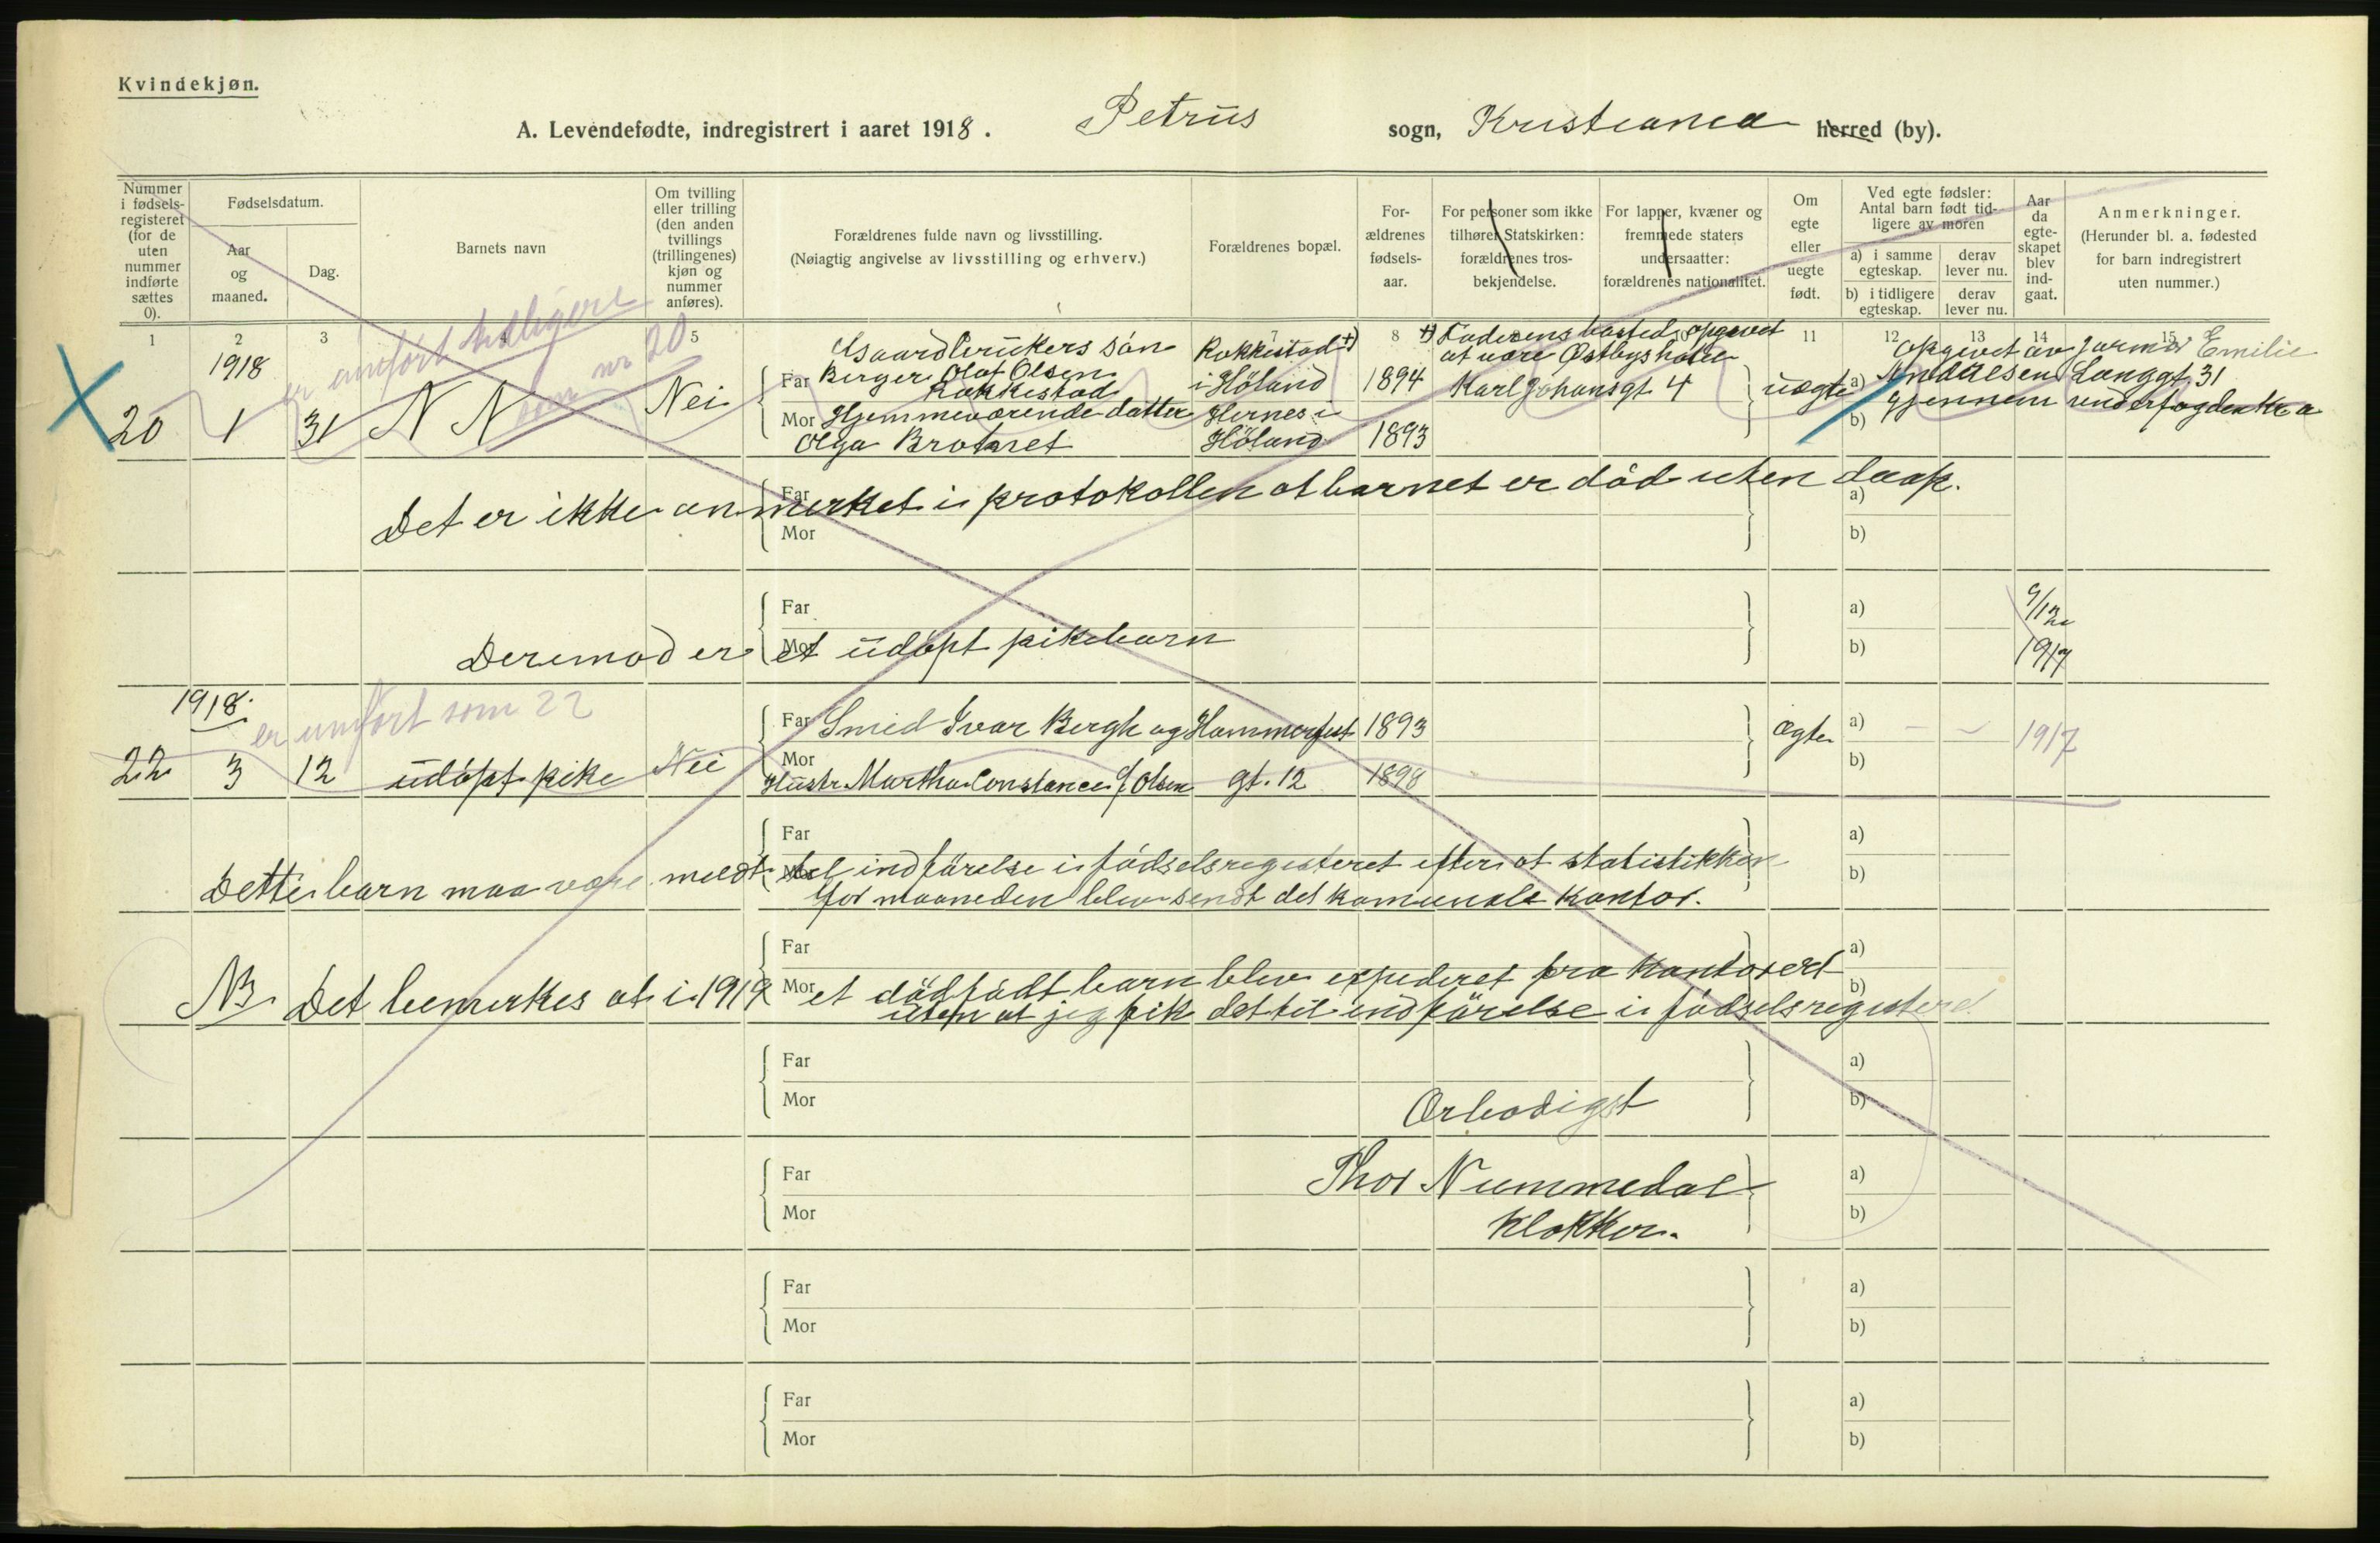 Kvindekjøn.
A. Levendefødte, indregistrert i aaret 1918. Petrus sogn, Kristiania herred (by).
Nummer i fødselsregisteret (for de uten nummer indførte sættes 0).
Fødselsdatum.
Aar og maaned.
Dag.
Barnets navn
Om tvilling eller trilling (den anden tvillings (trillingenes) kjøn og nummer anføres).
Forældrenes fulde navn og livsstilling.
(Nøiagtig angivelse av livsstilling og erhverv.)
Forældrenes bopæl.
Forældrenes fødselsaar.
For personer som ikke tilhører Statskirken: forældrenes trosbekjendelse.
For lapper, kvæner og fremmede staters undersaatter: forældrenes nationalitet.
Om egte eller uegte født.
Ved egte fødsler: Antal barn født tidligere av moren
a) i samme egteskap. derav lever nu.
b) i tidligere egteskap. derav lever nu.
Aar da egteskapet blev indgaat.
Anmerkninger.
(Herunder bl. a. fødested for barn indregistrert uten nummer.)
1 2 3 5 7 8 11 12 13 14 15
er umført tidligere
som nr 20
1918
20 1 31 N N Nei
Far Gaardbrukers søn
Berger Olaf Olsen
Rokkestad
Mor Hjemmeværende datter
Olga Brotaret
Rakkestad +)
i Høland
Hernes i
Høland
1894
1893
+) Faderens bosted opgivet
at være Østbys hotel
Karl Johansgt 4
uægte
a)
b)
Opgivet av jormor Emilie
Langgt. 31
gjennem underfogden Kr a
Det er ikke anmerket i protokollen at barnet er død uten daap.
Far
Mor
a)
b)
Far
Mor
a)
b)
Deremod er et udøpt pikebarn
9/12
1917
1918.
er umført som 22
22 3 12 udøpt pike Nei
Far Smed Ivar Bergh og
Mor
Hustr. Martha Constance f. Olsen
Hammerfest
gt. 12
1893
1898
Ægte
a) – –
b)
1917
Far
Mor
a)
b)
Dette barn maa være meldt til indførelse i fødselsregisteret efter at statistikken
for maaneden blev sendt det komunale kontor.
Far
Mor
a)
b)
NB. Det bemerkes at i 1919 et dødfødt barn blev expederet fra kontoret
uten at jeg fik det til indførelse i fødselsregisteret
Far
Mor
a)
b)
Ærbødigst
Far
Mor
a)
b)
Thor Nummedal
Klokker.
Far
Mor
a)
b)
Far
Mor
a)
b)